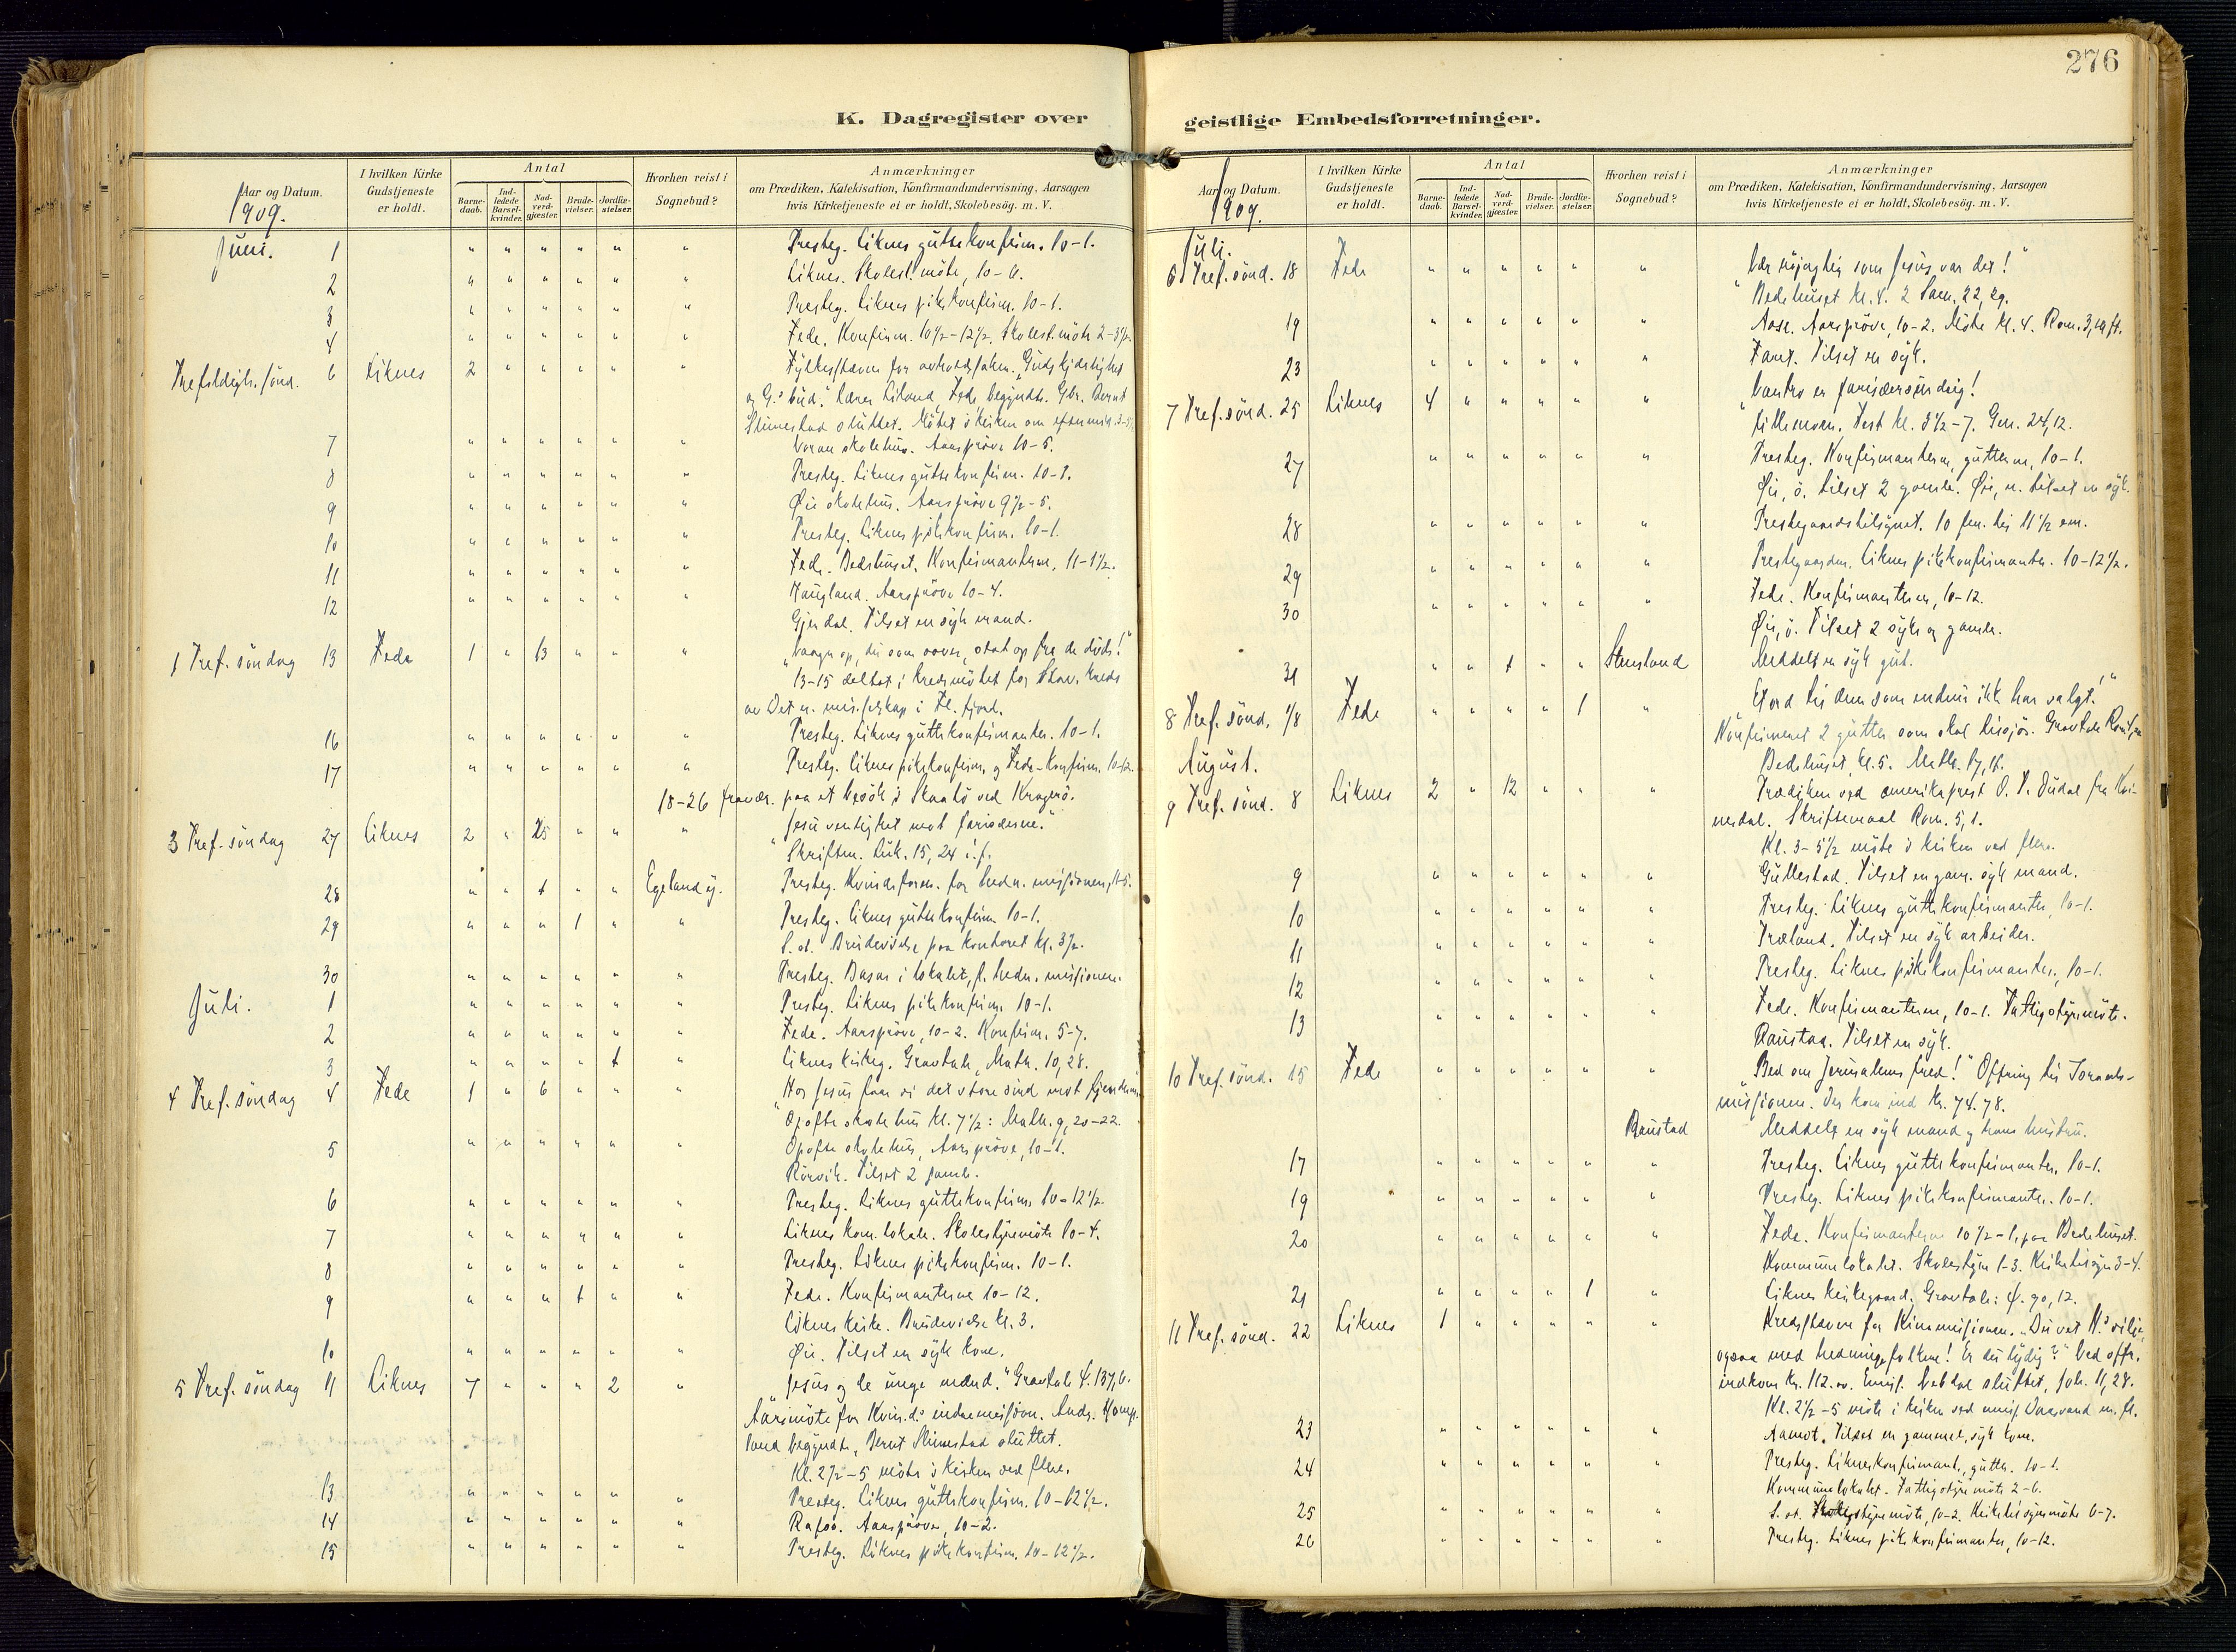 276
K. Dagregister over
geistlige Embedsforretninger.
Aar og Datum.
1909.
I hvilken Kirke Gudstjeneste er holdt.
Antal
Barnedaab.
Indledede Barselkvinder.
Nadverdgjester.
Brudevielser.
Jordfæstelser.
Hvorhen reist i Sognebud?
Anmærkninger
om Prædiken, Katekisation, Konfirmandundervisning, Aarsagen
hvis Kirketjeneste ei er holdt, Skolebesög. m. V.
Juni. 1 " " " " " " Presteg. Liknes guttekonfirm. 10-1.
2 " " " " " " Liknes. Skolest. møte, 10-6.
3 " " " " " " Presteg. Liknes pikekonfirm. 10-1.
4 " " " " " " Fede. Konfirm. 10½-12½. Skolest. møte 2-3½.
Trefoldigh. sønd. 6 Liknes 2 " " " " " Fylkesstevne for avholdssaken. "Guds kjærlighet
og G.s bud." Lærer Liland, Fede begyndte. Gbr. Bernt
Slimestad sluttet. Møtet i kirken om efterm. 3-5½.
7 " " " " " " skolehus. Aarsprøve 10-5.
8 " " " " " " Presteg. Liknes guttekonfirm. 10-1.
9 " " " " " " Øie skolehus. Aarsprøve 9½-5.
10 " " " " " " Presteg. Liknes pikekonfirm. 10-1.
11 " " " " " " Fede. Bedehuset. Konfirmanterne, 11-1½.
12 " " " " " " Haugland. Aarsprøve 10-4.
Gjerdal. Tilset en syk mand.
1 Tref. søndag 13 Fede 1 " 13 " " " "Vaagn op, du som sover, stat op fra de døde!"
13-15 deltat i kredsmøtet for Stav. kreds
av Det n. mis.selskap i Fl. fjord.
16 " " " " " " Presteg. Liknes guttekonfirmanter. 10-1.
17 " " " " " " Presteg. Liknes pikekonfirm. og Fede-konfirm. 10-12.
18-26 fravær. paa et besøk i Skaatø ved Kragerø.
3 Tref. søndag 27 Liknes 2 " 25 " " " "Jesu venlighet mot farisæerne."
Skriftem. Luk. 15, 24 i.f.
28 " " 1 " " Egeland y. Presteg. Kvindeforen. for hedn. missionen, 11-5.
29 " " " 1 " " Presteg. Liknes guttekonfirm 10-1.
S. st. Brudevielse paa kontoret kl. 3½.
30 " " " " " " Presteg. Basar i lokalet, f. hedn. missionen.
Juli. 1 " " " " " " Presteg. Liknes pikekonfirm. 10-1.
2 " " " " " " Fede. Aarsprøve, 10-2. Konfirm. 5-7.
3 " " " " 1 " Liknes kirkeg. Gravtale, Math. 10, 28.
4 Tref. søndag 4 Fede 1 " 6 " " " "Hos Jesus faar vi det store sind mot fienderne"
Opofte skolehus kl. 7½: Math. 9, 20-22.
5 " " " " " " Opofte skolehus, Aarsprøve, 10-1.
Rørvik. Tilset 2 gamle.
6 " " " " " " Presteg. Liknes guttekonfirm. 10-12½.
7 " " " " " " Liknes kom. lokale. Skolestyremøte 10-4.
8 " " " " " " Presteg. Liknes pikekonfirm. 10-1.
9 " " " 1 " " Fede. Konfirmanterne 10-12.
Liknes kirke. Brudevielse kl. 3.
10 " " " " " " Øie. Tilset en syk kone.
5 Tref. søndag 11 Liknes 7 " " " 2 " "Jesus og de unge mænd." Gravtale Ψ. 137, 6.
Aarsmøte for Kvin.d.s indremission. Andr.
land begyndte, Bernt Slimestad sluttet.
Kl. 2½-5 møte i kirken ved flere.
13 " " " " " " Presteg. Liknes guttekonfirm. 10-12½.
14 " " " " " " Rafoss. Aarsprøve, 10-2.
15 " " " " " " Presteg. Liknes pikekonfirm. 10-12½.
Aar og Datum.
1909.
I hvilken Kirke Gudstjeneste er holdt.
Antal
Barnedaab.
Indledede Barselkvinder.
Nadverdgjester.
Brudevielser.
Jordfæstelser.
Hvorhen reist i Sognebud?
Anmærkninger
om Prædiken, Katekisation, Konfirmandundervisning, Aarsagen
hvis Kirketjeneste ei er holdt, Skolebesög. m. V.
Juli.
6 Tref. sønd. 18 Fede " " " " " " "Vær nøjagtig som Jesus var det!"
Bedehuset kl. 4. 2 Sam. 22, 29.
19 " " " " " " Aase. Aarsprøve, 10-2. Møte kl. 4. Rom. 3, 19 ff.
23 " " " " " " Tilset en syk.
7 Tref. sønd. 25 Liknes 4 " " " " " "Vantro er farisæersyndig!
Fest kl. 3½-7. Gen. 24, 12.
27 " " " " " " Presteg. Konfirmanterne, gutterne, 10-1.
Øie, ö. tilset 2 gamle. Øie, n. tilset en syk.
28 " " " " " " Prestegaardstilsynet. 10 fm. til 11½ em.
29 " " " " " " Prestegaarden. Liknes pikekonfirmanter. 10-12½.
30 " " " " " " Fede. Konfirmanterne, 10-12.
Øie, ö. Tilset 2 syke og gamle.
31 " " 1 " " Stensland Meddelt en syk gut.
8 Tref. sønd. 1/8 Fede " " " " 1 " Et ord til dem som endnu ikke har valgt!"
Konfirmeret 2 gutter som skal tilsjøs. Gravtale Rom.
August. Bedehuset, kl. 5. Math. 17, 16.
9 Tref. sønd. 8 Liknes 2 " 12 " " " Prædiken ved amerikaprest O. T. Dudal fra Kvi-
nesdal. Skriftemaal Rom. 5, 1.
Kl. 3-5½ møte i kirken ved flere.
9 " " " " " " Gullestad. Tilset en gam. syk mand.
10 " " " " " " Presteg. Liknes guttekonfirmanter, 10-1.
11 " " " " " " Træland. Tilset en syk arbeider.
12 " " " " " " Presteg. Liknes pikekonfirmanter, 10-1.
13 " " " " " " Fede. Konfirmanterne, 10-1. Fattigstyremøte.
Raustad. Tilset en syk.
10 Tref. sønd. 15 Fede " " " " " " "Bed om Jerusalems fred!" Offring til Israels-
missionen. Der kom ind kr. 74.78.
Raustad Meddelt en syk mand og hans hustru.
17 " " " " " " Presteg. Liknes guttekonfirmanter, 10-1.
19 " " " " " " Presteg. Liknes pikekonfirmanter. 10-1.
20 " " " " " " Fede. Konfirmanterne 10½-1, paa Bedehuset.
Kommunelokalet. Skolestyre 1-3. Kirketilsyn 3-4.
21 " " " " 1 " Liknes kirkegaard. Gravtale: Ψ. 90, 12.
11 Tref. sønd. 22 Liknes 1 " " " " " Kredsstevne for Kinamissionen. "Du vet H.s vilje,
ogsaa med hedningefolkene! Er du lydig?" Ved offr.
indkom kr. 112.00. Emiss. Vebdal sluttet, Joh. 11, 28.
Kl. 2½-5 møte i kirken ved emiss. m. fl.
23 " " " " " " Aamot. Tilset en gammel, syk kone.
24 " " " " " " Presteg. Likneskonfirmant., gutter. 10-1.
Kommunelokalet. Fattigstyremøte 2-6.
25 " " " " " " S. st. Skolestyremøte, 10-2. Kirketilsynsmøte 6-7.
26 " " " " " " Presteg. Liknes pikekonfirmanter, 10-12.